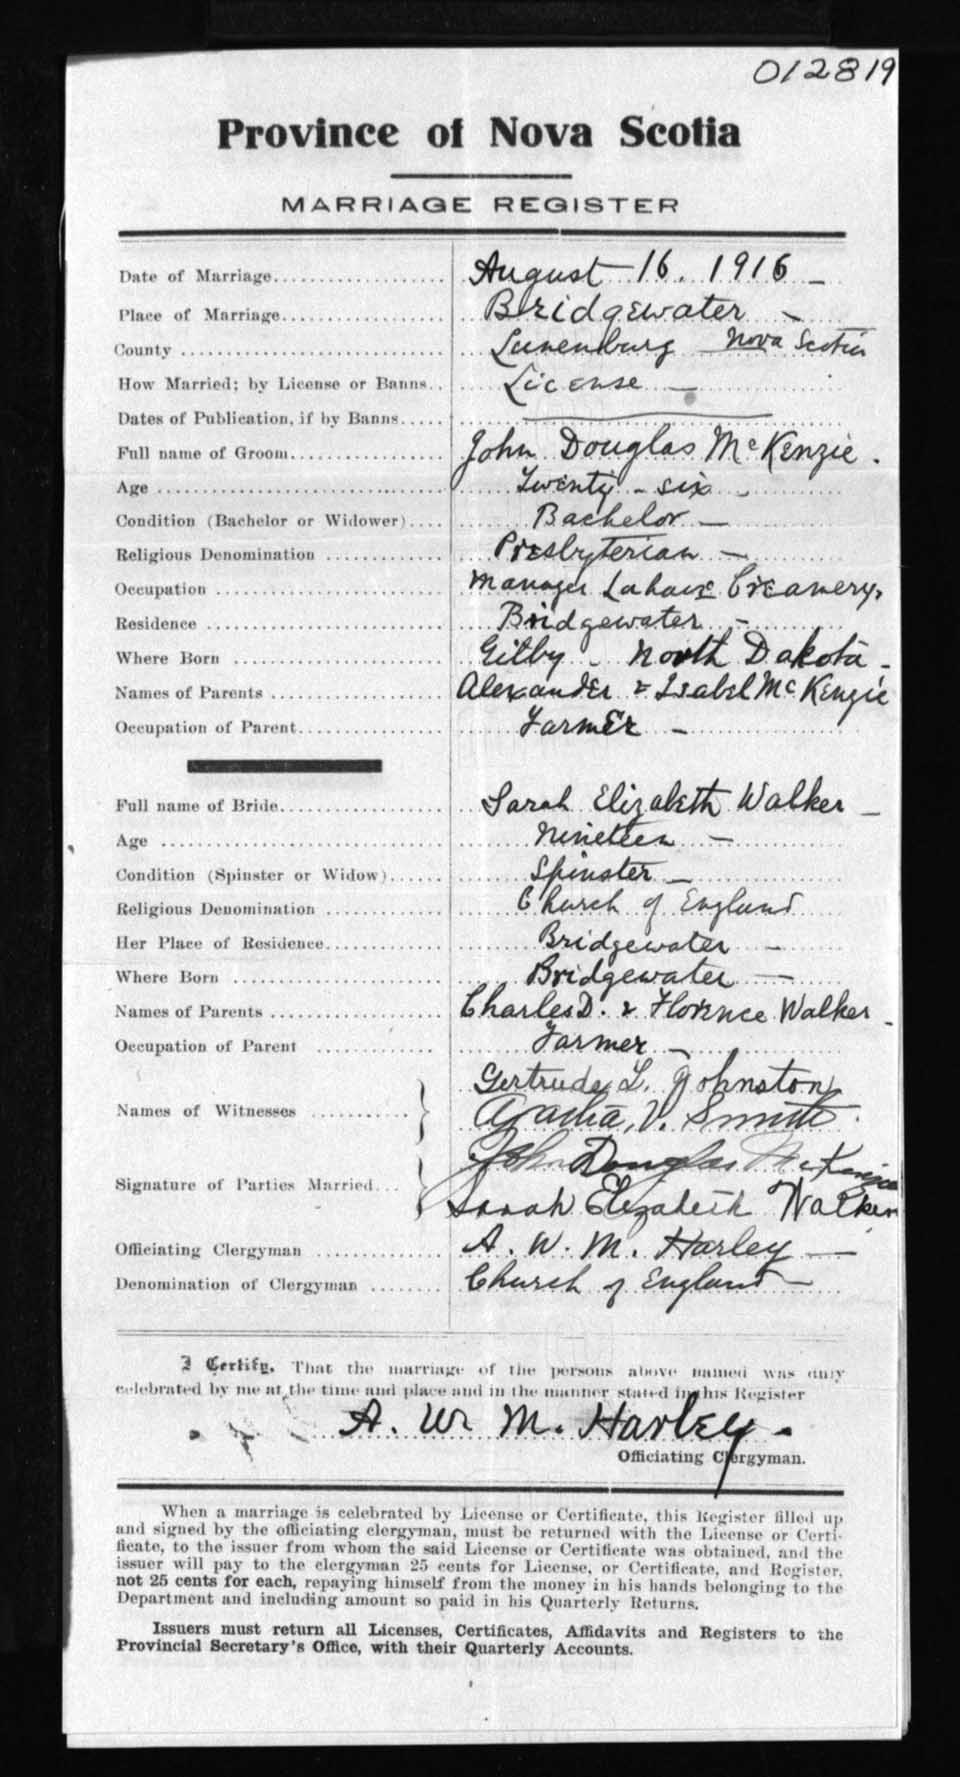 012819
Province of Nova Scotia
MARRIAGE REGISTER
Date of Marriage.................... August 16. 1916 —
Place of Marriage.................. Bridgewater -
County ............................. Lunenburg Nova Scotia
How Married; by License or Banns.. License —
Dates of Publication, if by Banns.....
Full name of Groom................. John Douglas McKenzie.
Age ................................ Twenty - six -
Condition (Bachelor or Widower).... Bachelor —
Religious Denomination ............. Presbyterian —
Occupation ......................... Manager Lahave Creamery,
Residence .......................... Bridgewater -
Where Born ....................... Gilby - North Dakota -
Names of Parents ................... Alexander & Isabel McKenzie
Occupation of Parent................ Farmer —
Full name of Bride.................. Sarah Elizabeth Walker —
Age ............................... Nineteen —
Condition (Spinster or Widow)...... Spinster —
Religious Denomination ............. Church of England
Her Place of Residence............. Bridgewater -
Where Born ....................... Bridgewater —
Names of Parents ................... Charles D. & Florence Walker -
Occupation of Parent ............. Farmer —
Gertrude L. Johnston
Names of Witnesses ........... V. Smith.
John Douglas McKenzie
Signature of Parties Married...
Sarah Elizabeth Walker
Officiating Clergyman ............. A. W. M. Harley —
Denomination of Clergyman ........ Church of England —
I Certify. That the marriage of the persons above named was duly
celebrated by me at the time and place and in the manner stated in this Register
A. W. M. Harley -
Officiating Clergyman.
When a marriage is celebrated by License or Certificate, this Register filled up
and signed by the officiating clergyman, must be returned with the License or Certi-
ficate, to the issuer from whom the said License or Certificate was obtained, and the
issuer will pay to the clergyman 25 cents for License, or Certificate, and Register,
not 25 cents for each, repaying himself from the money in his hands belonging to the
Department and including amount so paid in his Quarterly Returns.
Issuers must return all Licenses, Certificates, Affidavits and Registers to the
Provincial Secretary's Office, with their Quarterly Accounts.